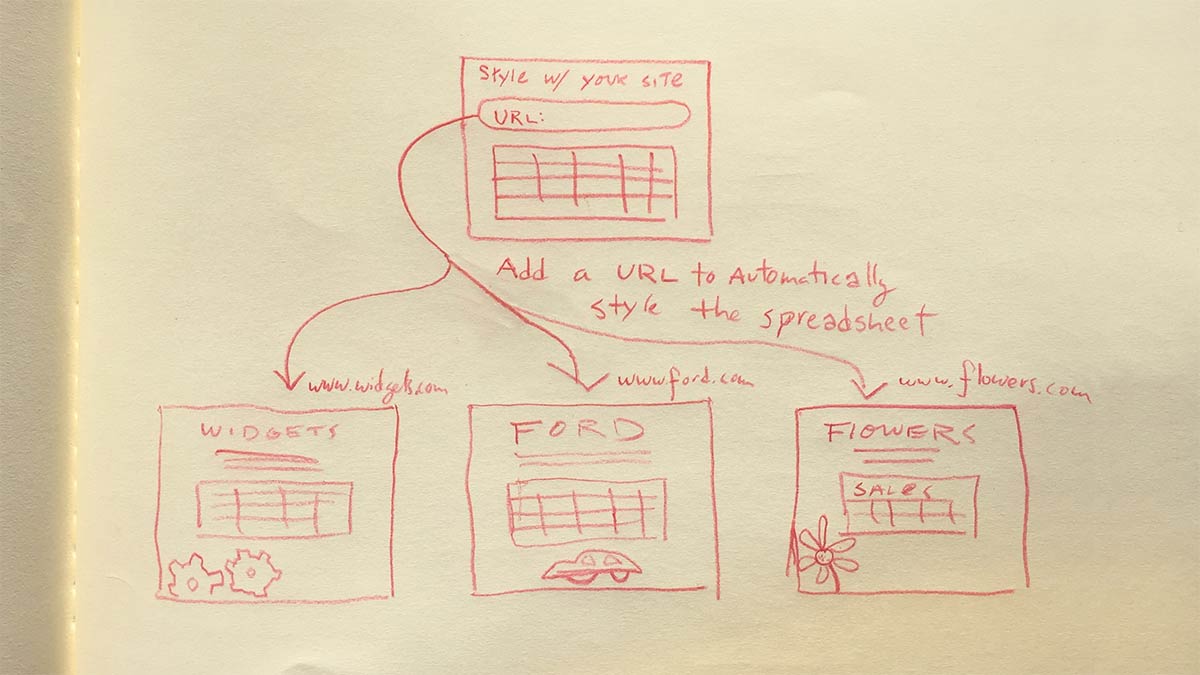 Style w/ your site
URL:
Add a URL to Automatically
style the spreadsheet
www.widgets.com
www.ford.com
www.flowers.com
WIDGETS
FORD
FLOWERS
SALES